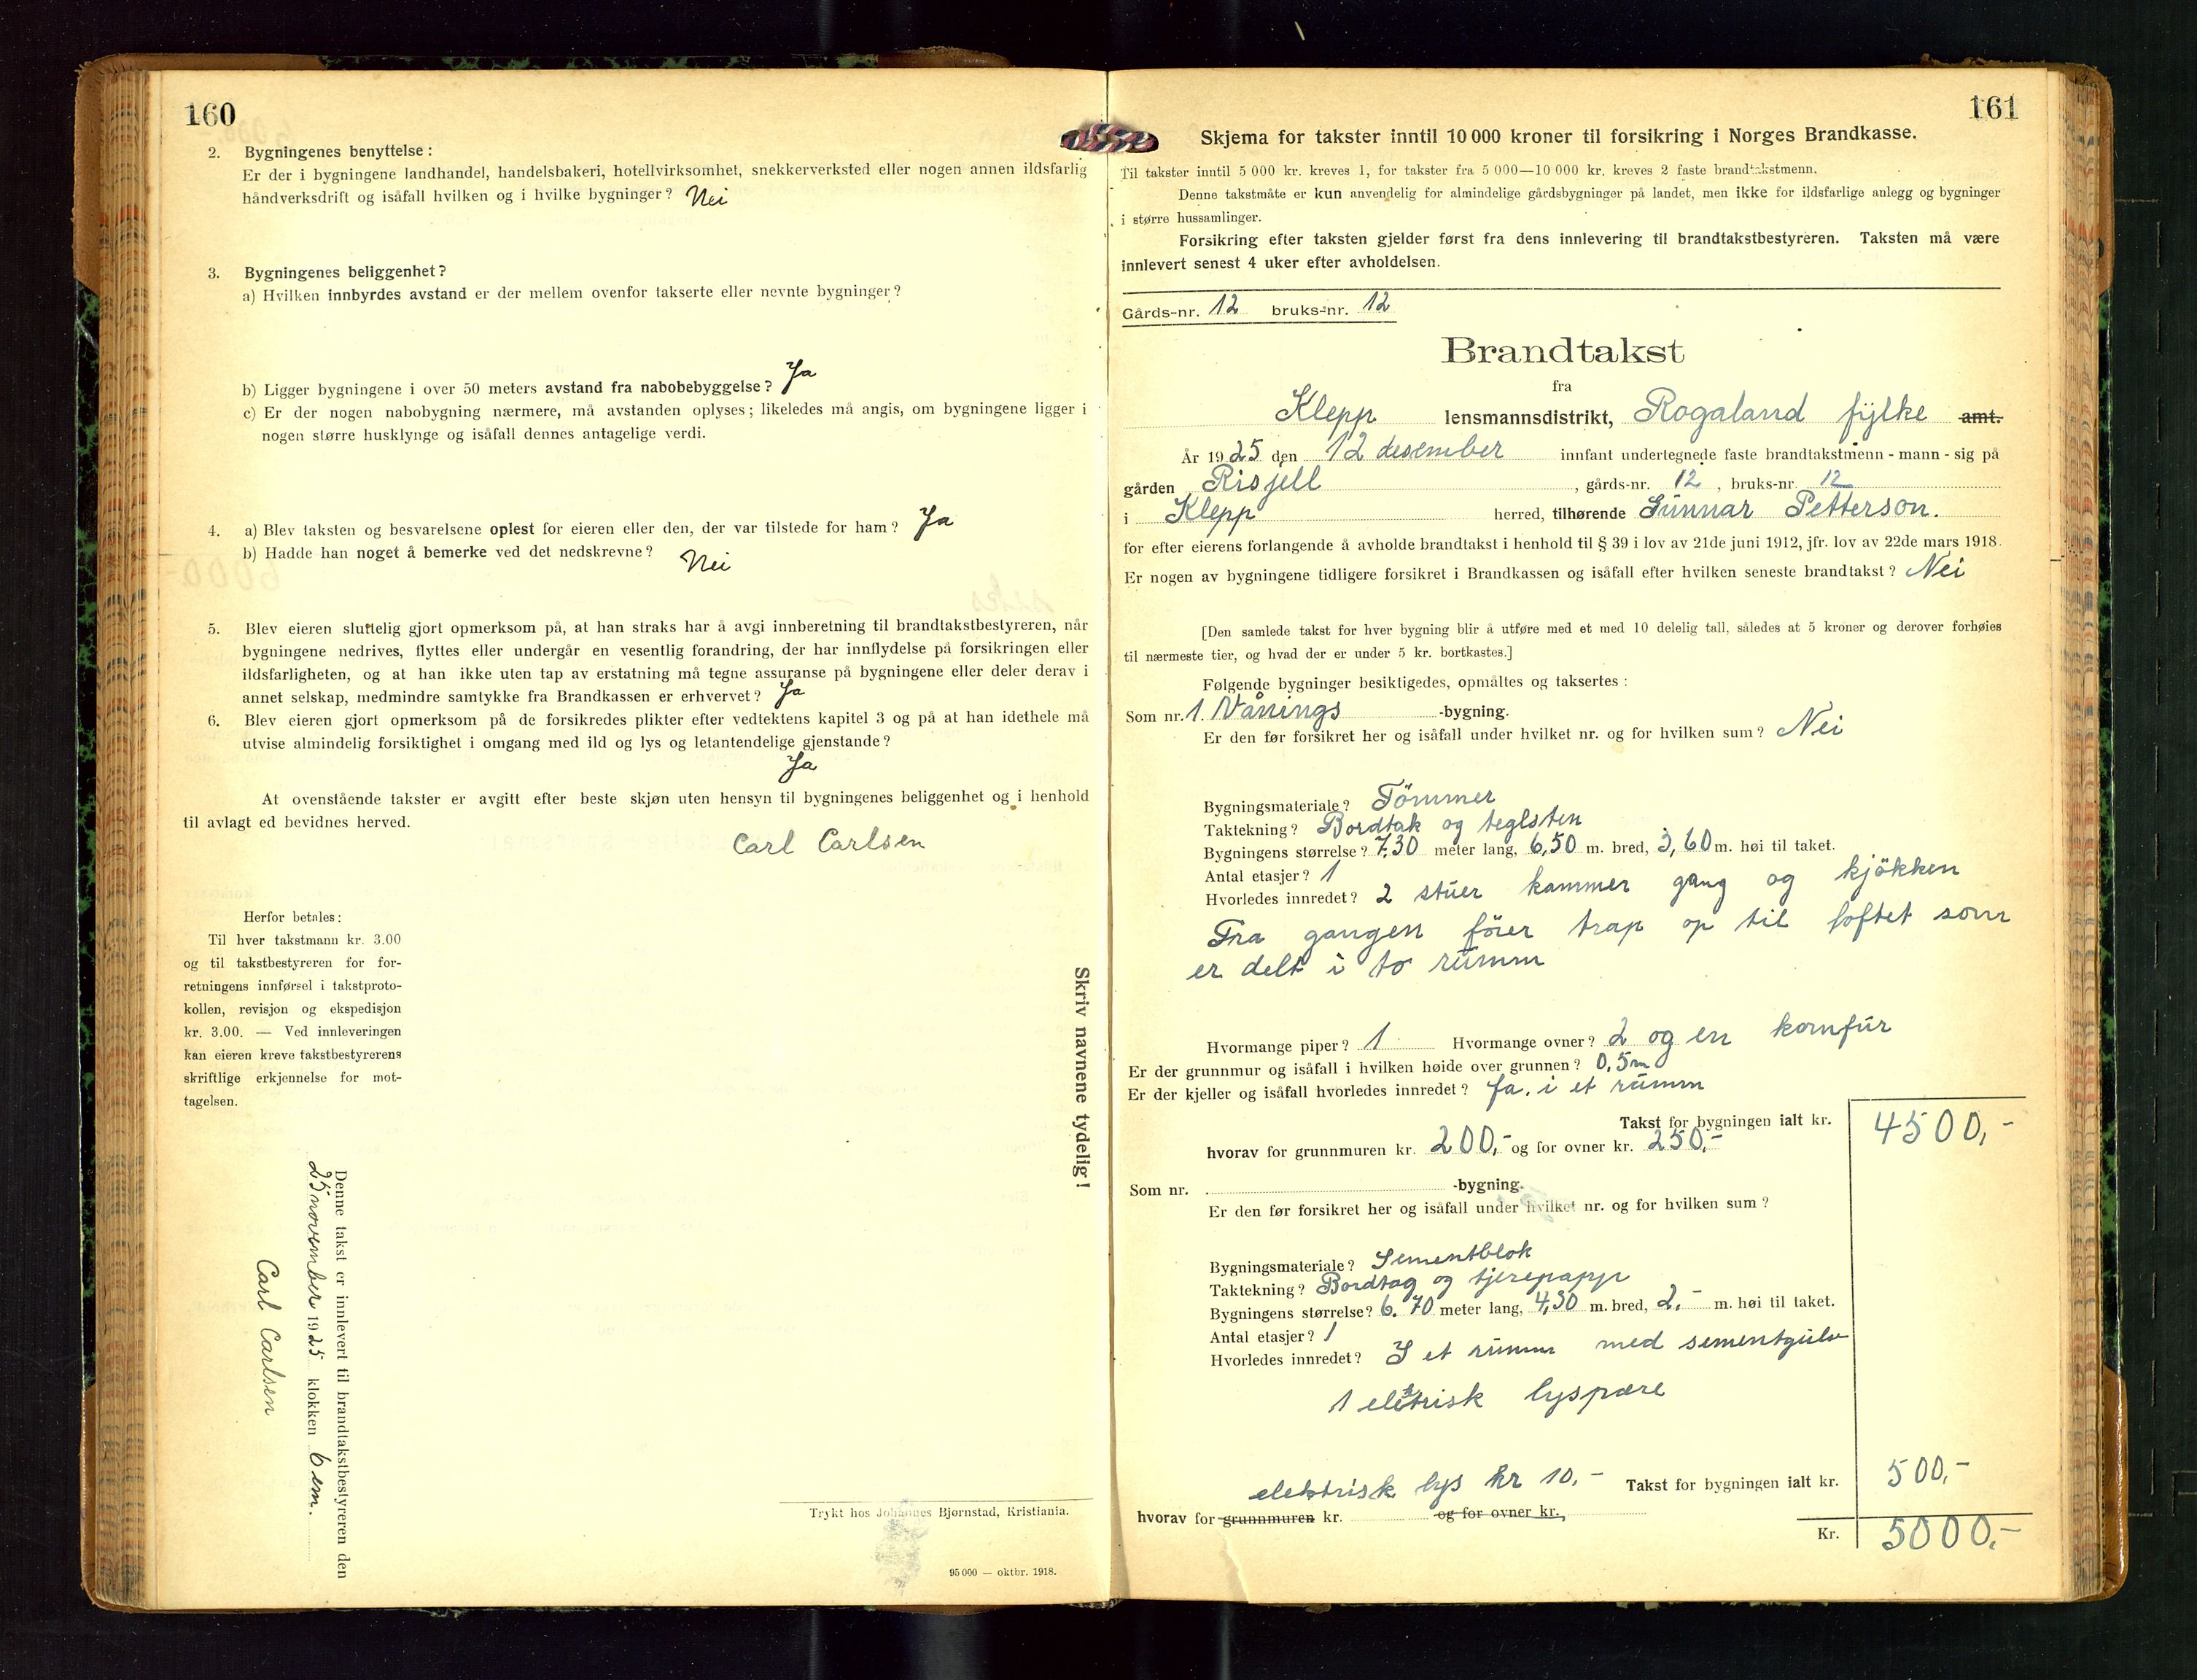 160
2. Bygningenes benyttelse:
Er der i bygningene landhandel, handelsbakeri, hotellvirksomhet, snekkerverksted eller nogen annen ildsfarlig
håndverksdrift og isåfall hvilken og i hvilke bygninger? Nei
3. Bygningenes beliggenhet?
a) Hvilken innbyrdes avstand er der mellem ovenfor takserte eller nevnte bygninger?
b) Ligger bygningene i over 50 meters avstand fra nabobebyggelse? Ja
c) Er der nogen nabobygning nærmere, må avstanden oplyses; likeledes må angis, om bygningene ligger i
nogen større husklynge og isåfall dennes antagelige verdi.
4. a) Blev taksten og besvarelsene oplest for eieren eller den, der var tilstede for ham? Ja
b) Hadde han noget å bemerke ved det nedskrevne? Nei
5. Blev eieren sluttelig gjort opmerksom på, at han straks har å avgi innberetning til brandtakstbestyreren, når
bygningene nedrives, flyttes eller undergår en vesentlig forandring, der har innflydelse på forsikringen eller
ildsfarligheten, og at han ikke uten tap av erstatning må tegne assuranse på bygningene eller deler derav i
annet selskap, medmindre samtykke fra Brandkassen er erhvervet? Ja
6. Blev eieren gjort opmerksom på de forsikredes plikter efter vedtektens kapitel 3 og på at han idethele må
utvise almindelig forsiktighet i omgang med ild og lys og letantendelige gjenstande?
Ja
At ovenstående takster er avgitt efter beste skjøn uten hensyn til bygningenes beliggenhet og i henhold
til avlagt ed bevidnes herved.
Carl Carlsen
Herfor betales:
Til hver takstmann kr. 3.00
og til takstbestyreren for for-
retningens innførsel i takstproto-
kollen, revisjon og ekspedisjon
kr. 3.00. — Ved innleveringen
kan eieren kreve takstbestyrerens
skriftlige erkjennelse for mot-
tagelsen.
Skriv navnene tydelig!
Denne takst er innlevert til brandtakstbestyreren den
25 november 1925 klokken 6 em.
Carl Carlsen
Trykt hos Johannes Bjørnstad, Kristiania.
95 000 — oktbr. 1918.
161
Skjema for takster inntil 10 000 kroner til forsikring i Norges Brandkasse.
Til takster inntil 5 000 kr. kreves 1, for takster fra 5 000—10 000 kr. kreves 2 faste brandtakstmenn.
Denne takstmåte er kun anvendelig for almindelige gårdsbygninger på landet, men ikke for ildsfarlige anlegg og bygninger
i større hussamlinger.
Forsikring efter taksten gjelder først fra dens innlevering til brandtakstbestyreren. Taksten må være
innlevert senest 4 uker efter avholdelsen.
Gårds-nr. 12 bruks-nr. 12
Brandtakst
fra
Klepp lensmannsdistrikt, Rogaland fylke amt.
År 1925 den 12 desember innfant undertegnede faste brandtakstmenn - mann - sig på
gården Risjell, gårds-nr. 12, bruks-nr. 12
i Klepp herred, tilhørende Gunnar Petterson.
for efter eierens forlangende å avholde brandtakst i henhold til § 39 i lov av 21de juni 1912, jfr. lov av 22de mars 1918.
Er nogen av bygningene tidligere forsikret i Brandkassen og isåfall efter hvilken seneste brandtakst? Nei
[Den samlede takst for hver bygning blir å utføre med et med 10 delelig tall, således at 5 kroner og derover forhøies
til nærmeste tier, og hvad der er under 5 kr. bortkastes.]
Følgende bygninger besiktigedes, opmåltes og taksertes:
Som nr. 1. Vånings -bygning.
Er den før forsikret her og isåfall under hvilket nr. og for hvilken sum? Nei
Bygningsmateriale? Tömmer
Taktekning? Bordtak og teglsten
Bygningens størrelse? 7,30 meter lang, 6,50 m. bred, 3,60 m. høi til taket.
Antal etasjer? 1
Hvorledes innredet? 2 stuer kammer gang og kjökken
Fra gangen förer trap op til loftet som
er delt i to rumm
Hvormange piper? 1 Hvormange ovner? 2 og en komfur
Er der grunnmur og isåfall i hvilken høide over grunnen? 0,5 m
Er der kjeller og isåfall hvorledes innredet? Ja. i et rumm
Takst for bygningen ialt kr. 4500,-
hvorav for grunnmuren kr. 200,- og for ovner kr. 250,-
Som nr. -bygning.
Er den før forsikret her og isåfall under hvilket nr. og for hvilken sum?
Bygningsmateriale? Sementblok
Taktekning? Bordtag og tjerepapp
Bygningens størrelse? 6.70 meter lang, 4,30 m. bred, 2,- m. høi til taket.
Antal etasjer? 1
Hvorledes innredet? I et rumm med sementgulv
1 elektrisk lyspære
elektrisk lys kr 10,- Takst for bygningen ialt kr. 500,-
hvorav for grunnmuren kr. og for ovner kr.
Kr. 5000,-